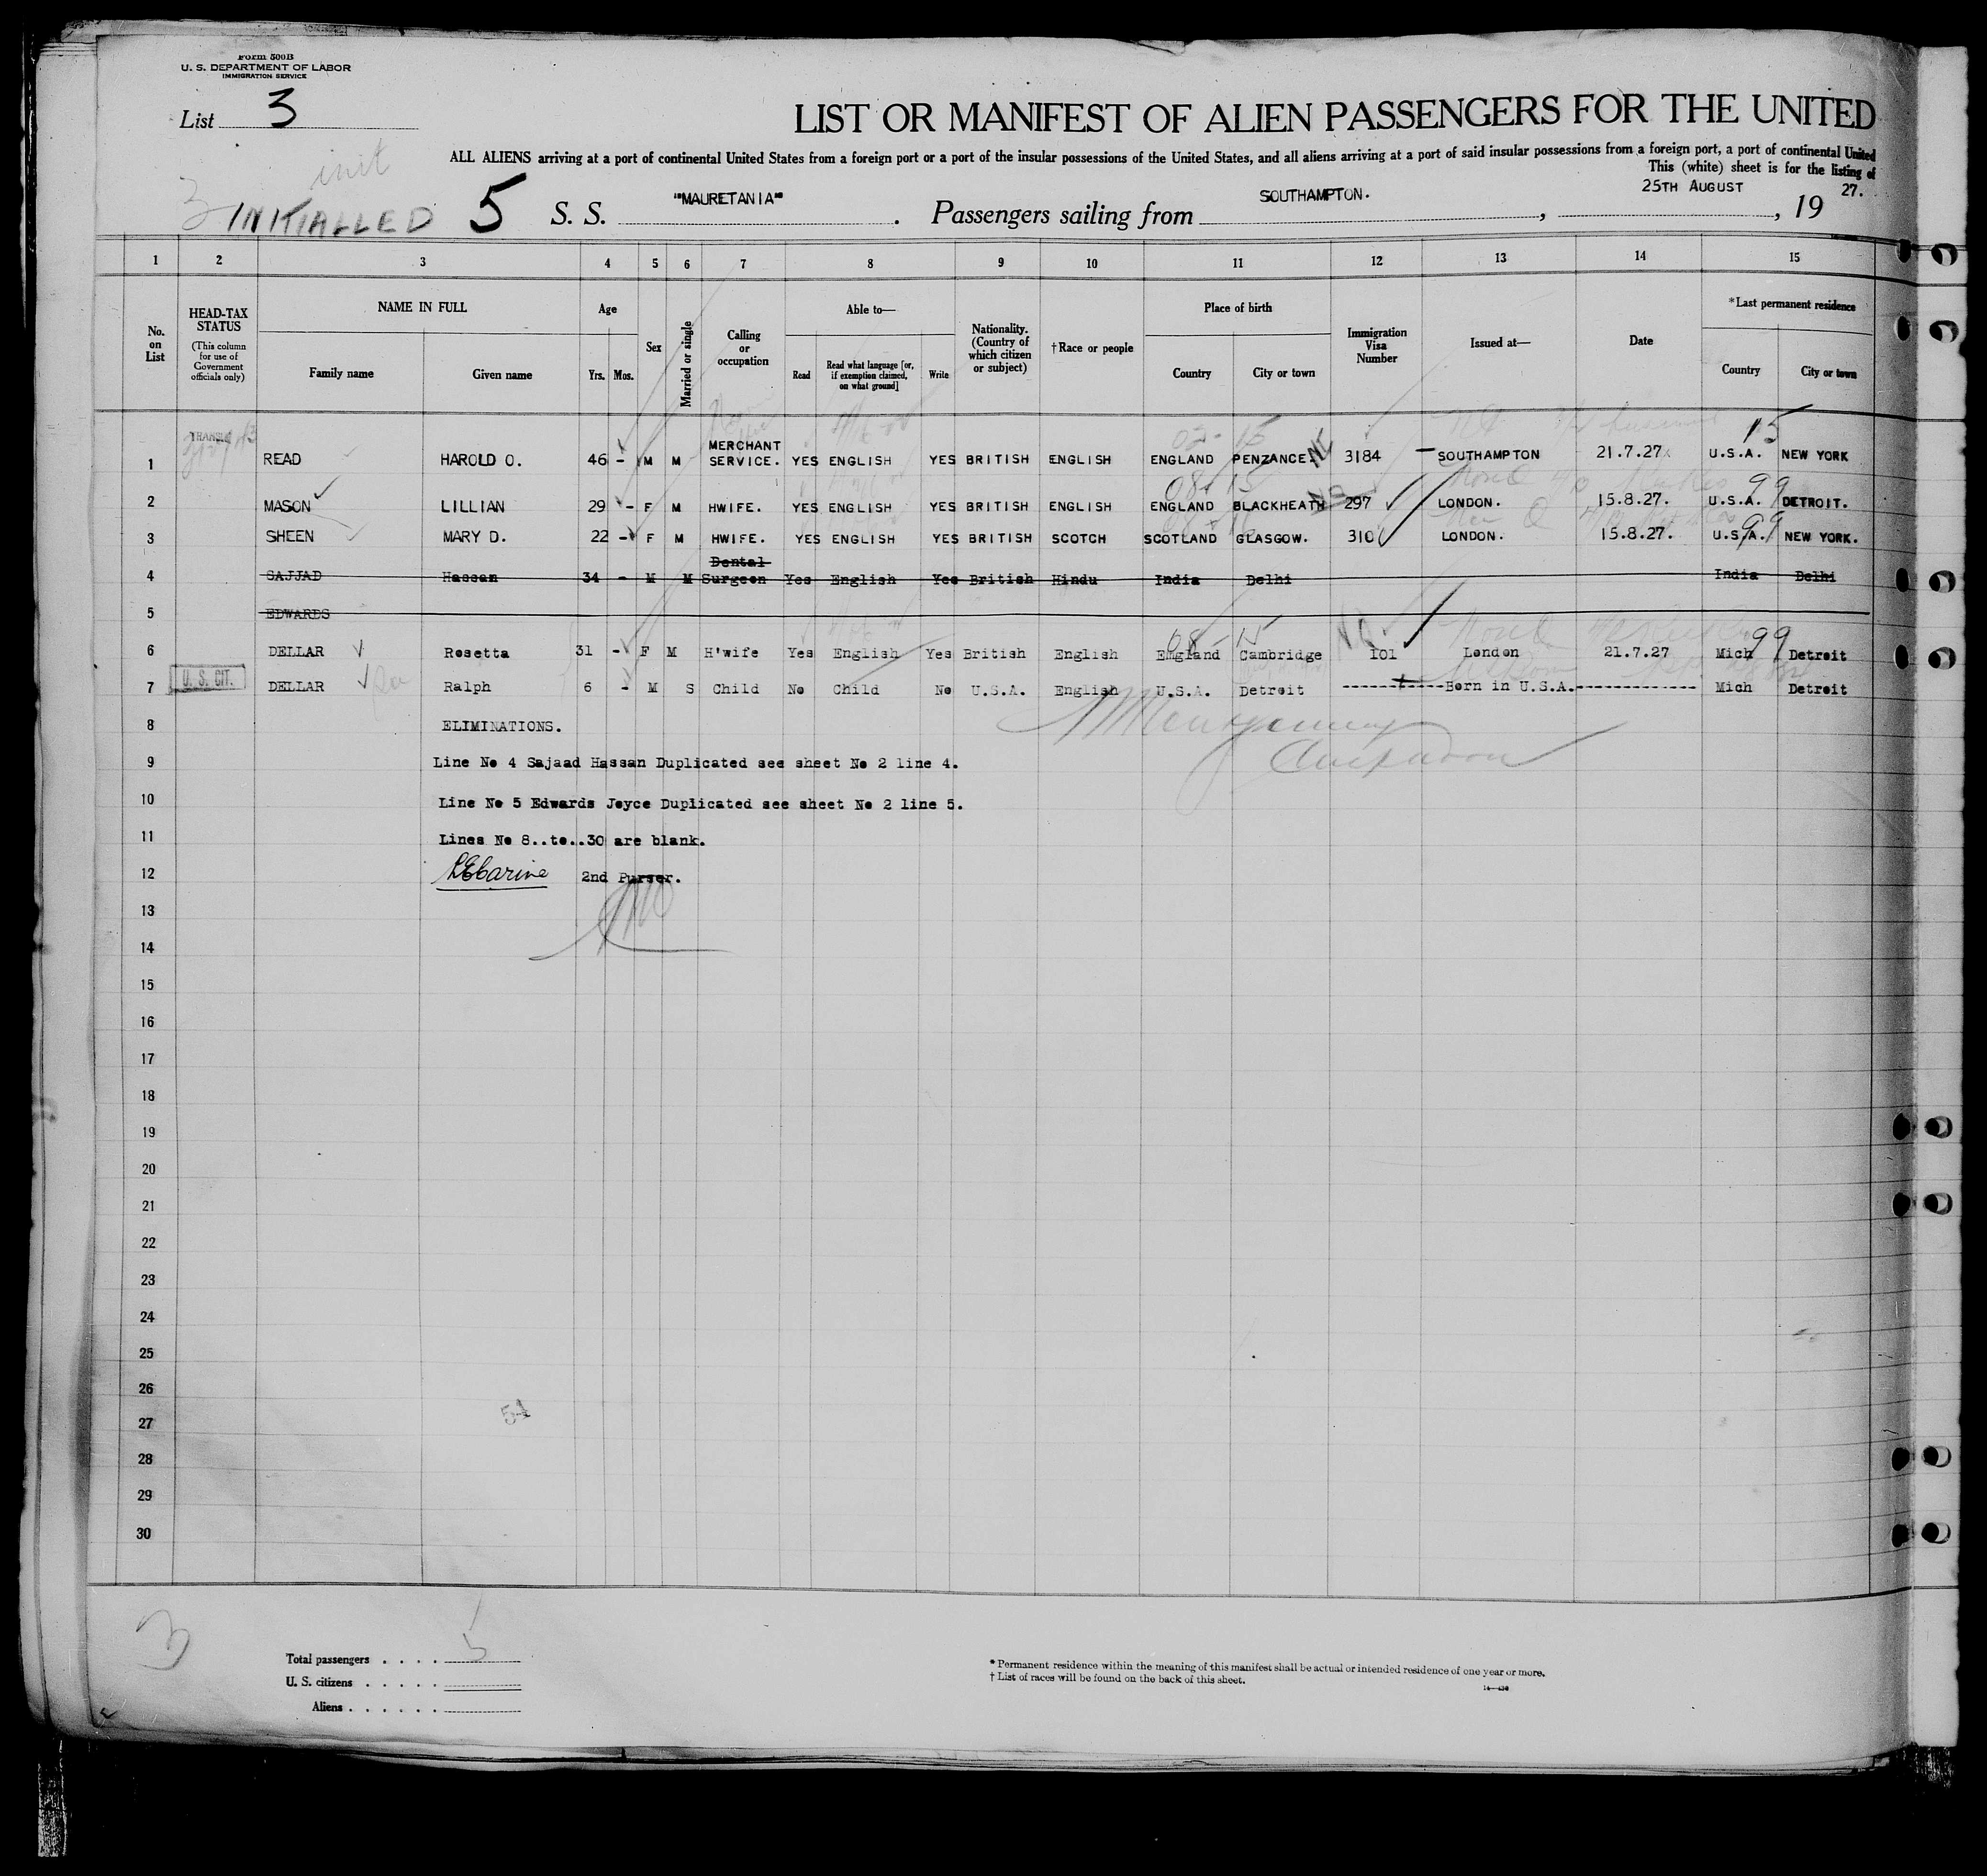 Form 500B
U. S. DEPARTMENT OF LABOR
IMMIGRATION SERVICE
List 3
LIST OR MANIFEST OF ALIEN PASSENGERS FOR THE UNITED
ALL ALIENS arriving at a port of continental United States from a foreign port or a port of the insular possessions of the United States, and all aliens arriving at a port of said insular possessions from a foreign port, a port of continental United
This (white) sheet is for the listing of
init
3 INITIALLED 5 S. S. "MAURETANIA". Passengers sailing from SOUTHAMPTON., 25TH AUGUST, 19 27.
1 2 3 4 5 6 7 8 9 10 11 12 13 14 15
No. on List
HEAD-TAX STATUS (This column for use of Government officials only)
NAME IN FULL
Family name Given name
Age
Yrs. Mos.
Sex
Married or single
Calling or occupation
Able to—
Read Read what language [or, if exemption claimed, on what ground] Write
Nationality. (Country of which citizen or subject)
†Race or people
Place of birth
Country City or town
Immigration Visa Number
Issued at—
Date
*Last permanent residence
Country City or town
1 READ HAROLD O. 46 - M M MERCHANT SERVICE. YES ENGLISH YES BRITISH ENGLISH ENGLAND PENZANCE. 3184 SOUTHAMPTON 21.7.27 U.S.A. NEW YORK
2 MASON LILLIAN 29 - F M HWIFE. YES ENGLISH YES BRITISH ENGLISH ENGLAND BLACKHEATH 297 LONDON. 15.8.27. U.S.A. DETROIT.
3 SHEEN MARY D. 22 - F M HWIFE. YES ENGLISH YES BRITISH SCOTCH SCOTLAND GLASGOW. 310 LONDON. 15.8.27. U.S.A. NEW YORK.
4 SAJJAD Hassan 34 - M M Dental Surgeon Yes English Yes British Hindu India Delhi India Delhi
5 EDWARDS
6 DELLAR Rosetta 31 - F M H'wife Yes English Yes British English England Cambridge 101 London 21.7.27 Mich Detroit
7 U. S. CIT. DELLAR Ralph 6 - M S Child No Child No U.S.A. English U.S.A. Detroit ----------Born in U.S.A.-------------- Mich Detroit
8 ELIMINATIONS.
9 Line No 4 Sajaad Hassan Duplicated see sheet No 2 line 4.
10 Line No 5 Edwards Joyce Duplicated see sheet No 2 line 5.
11 Lines No 8..to..30 are blank.
12 2nd Purser.
13
14
15
16
17
18
19
20
21
22
23
24
25
26
27
28
29
30
54
3
Total passengers . . . . 5
U. S. citizens . . . . .
Aliens . . . . . .
* Permanent residence within the meaning of this manifest shall be actual or intended residence of one year or more.
† List of races will be found on the back of this sheet.